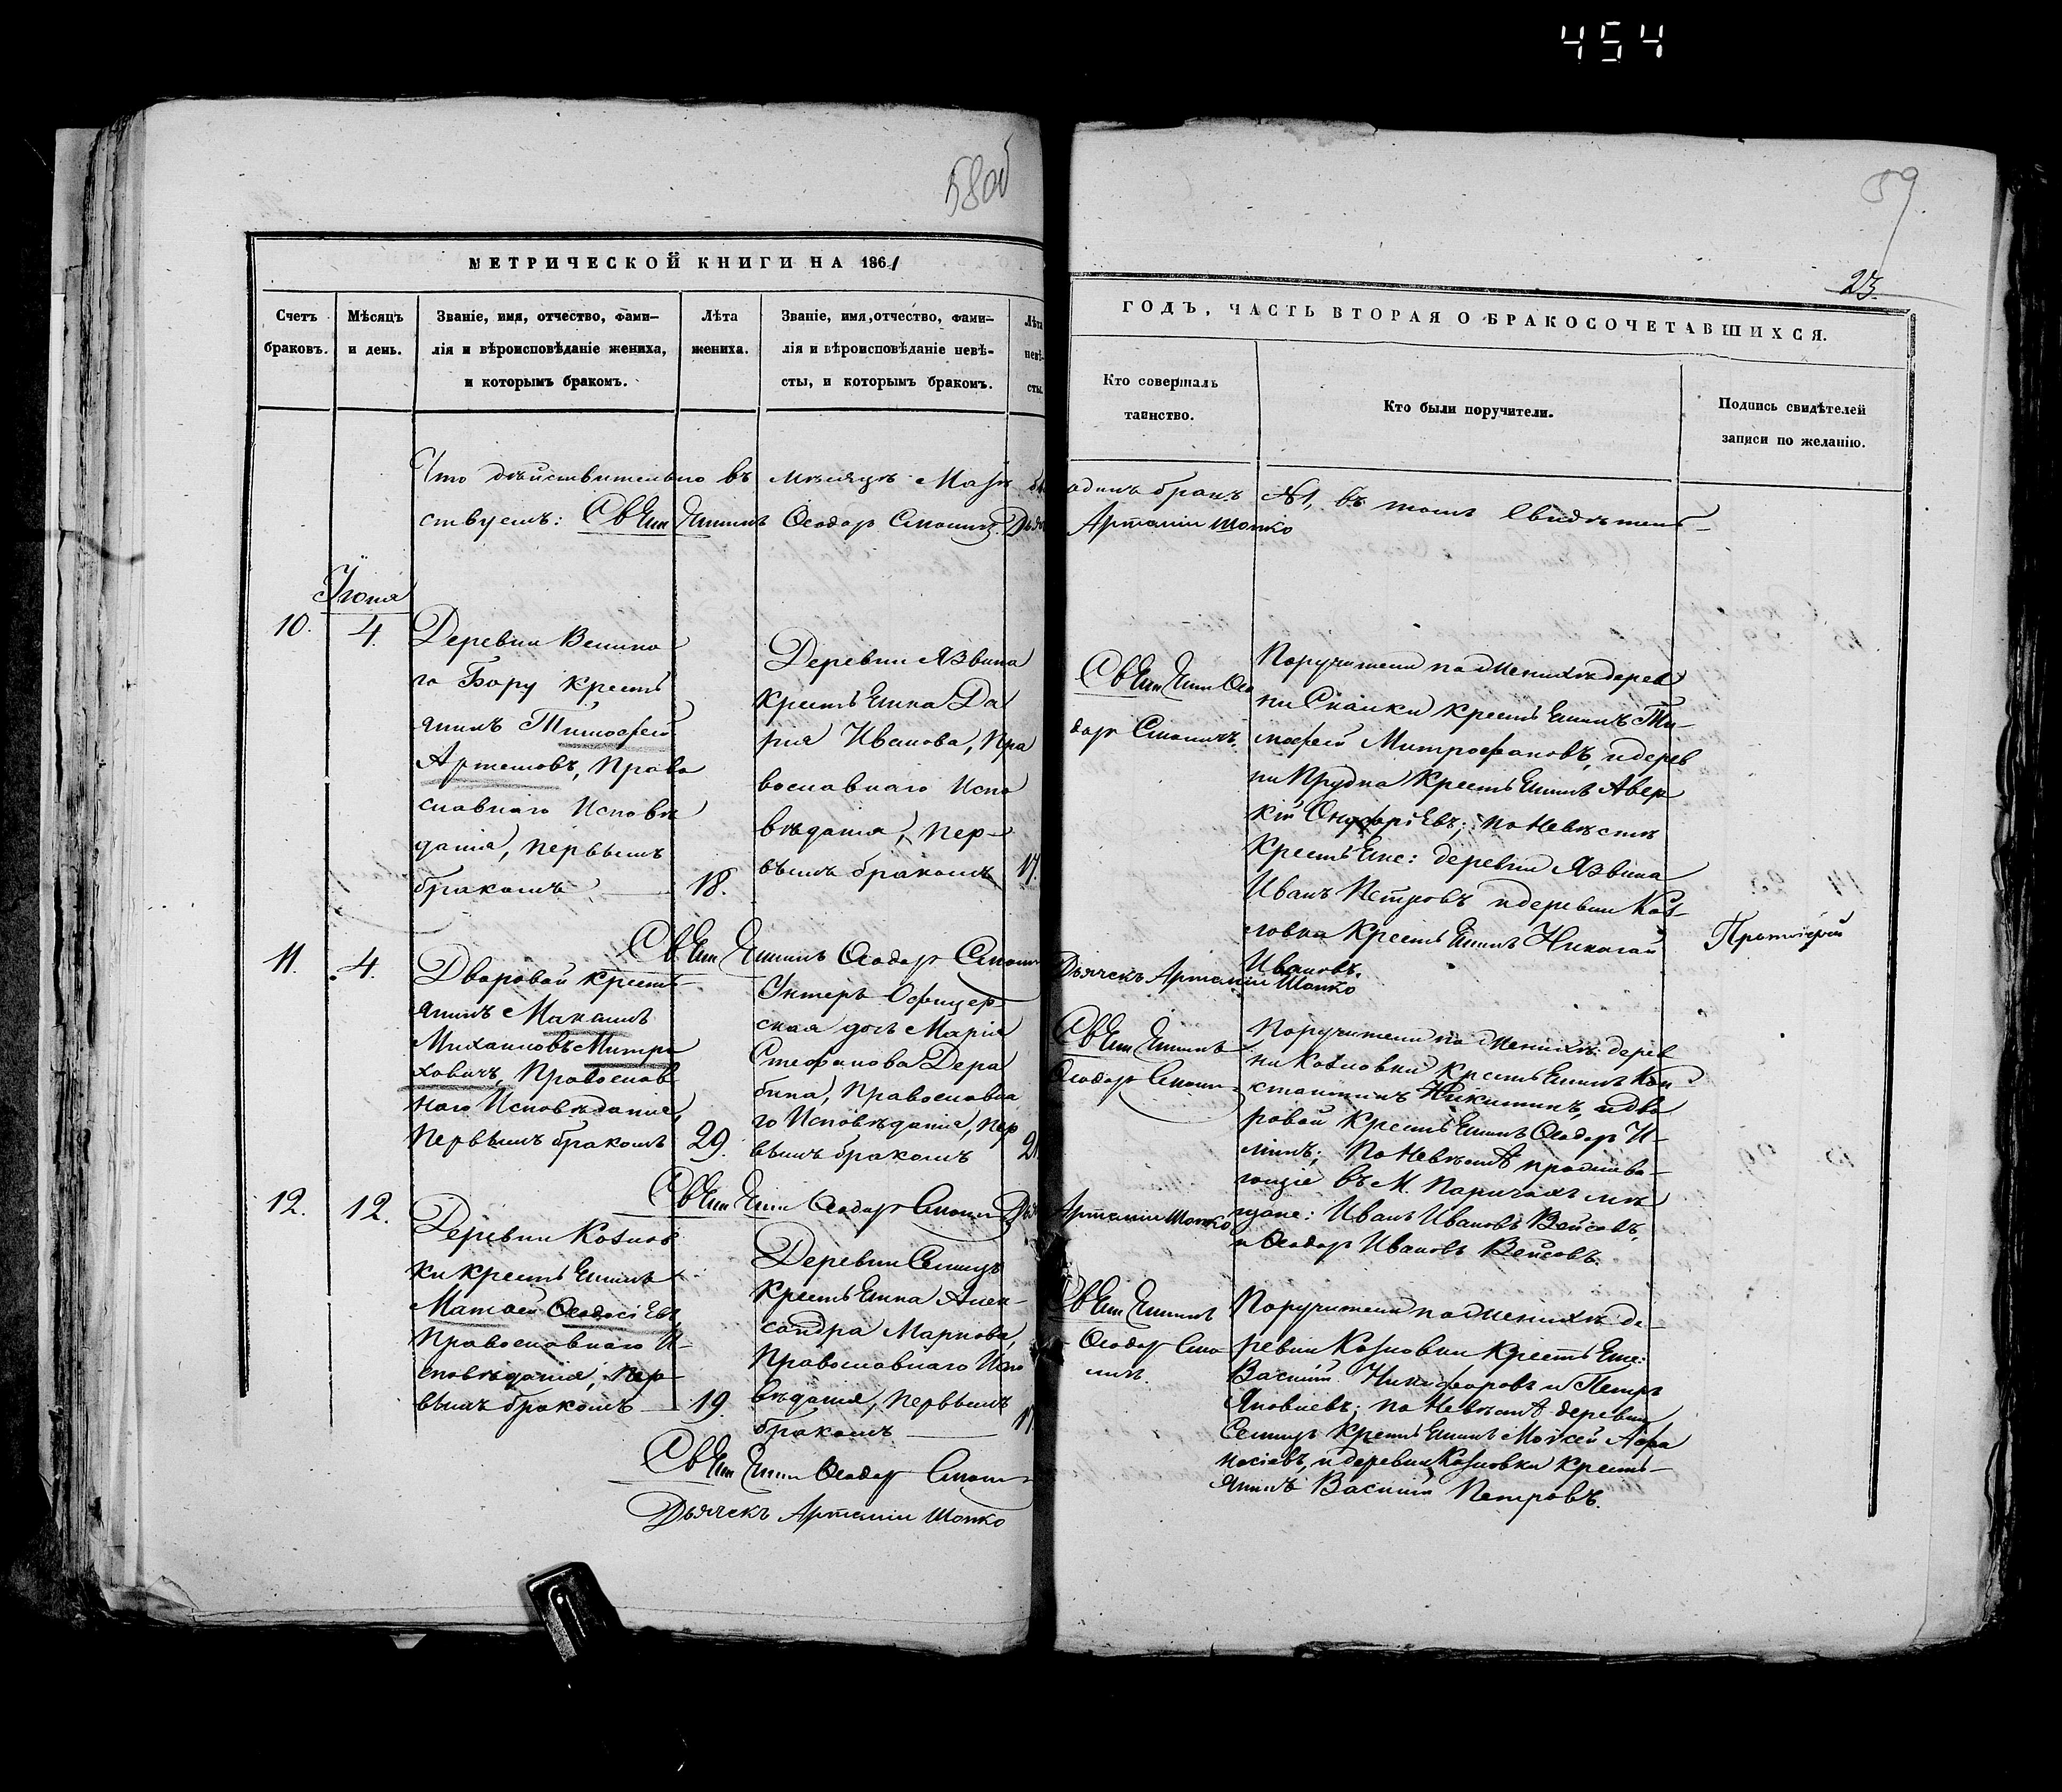 454
58об
59
23.
МЕТРИЧЕСКОЙ КНИГИ НА 1861
ГОДЪ, ЧАСТЬ ВТОРАЯ О БРАКОСОЧЕТАВШИХСЯ.
Счетъ
браковъ.
Мѣсяцъ
и день.
Званіе, имя, отчество, фами-
лія и вѣроисповѣданіе жениха,
и которымъ бракомъ.
Лѣта
жениха.
Званіе, имя, отчество, фами-
лія и вѣроисповѣданіе невѣ-
сты, и которымъ бракомъ.
Лѣта
невѣ-
сты.
Кто совершалъ
таинство.
Кто были поручители.
Подпись свидѣтелей
записи по желанію.
Что дѣйствительно въ мѣсяцѣ Маѣ
одинъ бракъ №1, въ томъ свидѣтель-
ствуемъ: Священникъ Ѳеодоръ
Артемій Шопко
Іюня
10.
4.
Деревни Велика
го Бору кресть
янинъ Тимоѳей
Артемовъ, Право
славнаго Исповѣ
данія, первымъ
бракомъ
18.
Деревни Язвина
крестьянка Да
рія Иванова, Пра
вославнаго Испо
вѣданія, пер-
вымъ бракомъ
17.
Священникъ Ѳео
доръ
Поручители по женихѣ дерев
ни Сканки крестьянинъ Ти-
моѳей Митрофановъ, и дерев
ни Прудка крестьянинъ Авер
кій Онуфріевъ; по невѣстѣ
крестьяне: деревни Язвина
Иванъ Петровъ и деревни Коз-
ловки крестьянинъ Николай
Ивановъ.
Протоіерей
Священникъ Ѳеодоръ
Дьячекъ Артемій Шопко
11.
4.
Дворовой кресть-
янинъ Макаимъ
Михаиловъ Митра
ховичъ, Православ
наго Исповѣданія,
первымъ бракомъ
29.
Унтеръ-Офицер-
ская дочь Марія
Стефанова Дера
бина, Православна
го Исповѣданія, пер
вымъ бракомъ
21.
Священникъ
Ѳеодоръ
Поручители по женихѣ: дерев
ни Козловки крестьянинъ Кон-
стантинъ Никитинъ, и дво
ровой крестьянинъ Ѳеодоръ И-
линъ; по невѣстѣ прожива-
ющіе въ М. Паричахъ мѣ
щане: Иванъ Ивановъ Вейсовъ,
и Ѳеодоръ Ивановъ Вейсовъ.
Священникъ Ѳеодоръ
Артемій Шопко
12.
12.
Деревни Козлов
ки крестьянинъ
Матѳей Ѳеодосіевъ,
Православнаго И-
сповѣданія, пер-
вымъ бракомъ
19.
Деревни Селищъ
крестьянка Алек-
сандра Маркова,
Православнаго Испо
вѣданія, первымъ
бракомъ
17.
Священникъ
Ѳеодоръ
Поручители по женихѣ де-
ревни Козловки крестьяне:
Василій Никифоровъ и Петръ
Яковлевъ; по невѣстѣ деревни
Селищъ крестьянинъ Моисей Аѳа
насіевъ, и деревни Козловки кресть-
янинъ Василій Петровъ.
Священникъ Ѳеодоръ
Дьячекъ Артемій Шопко